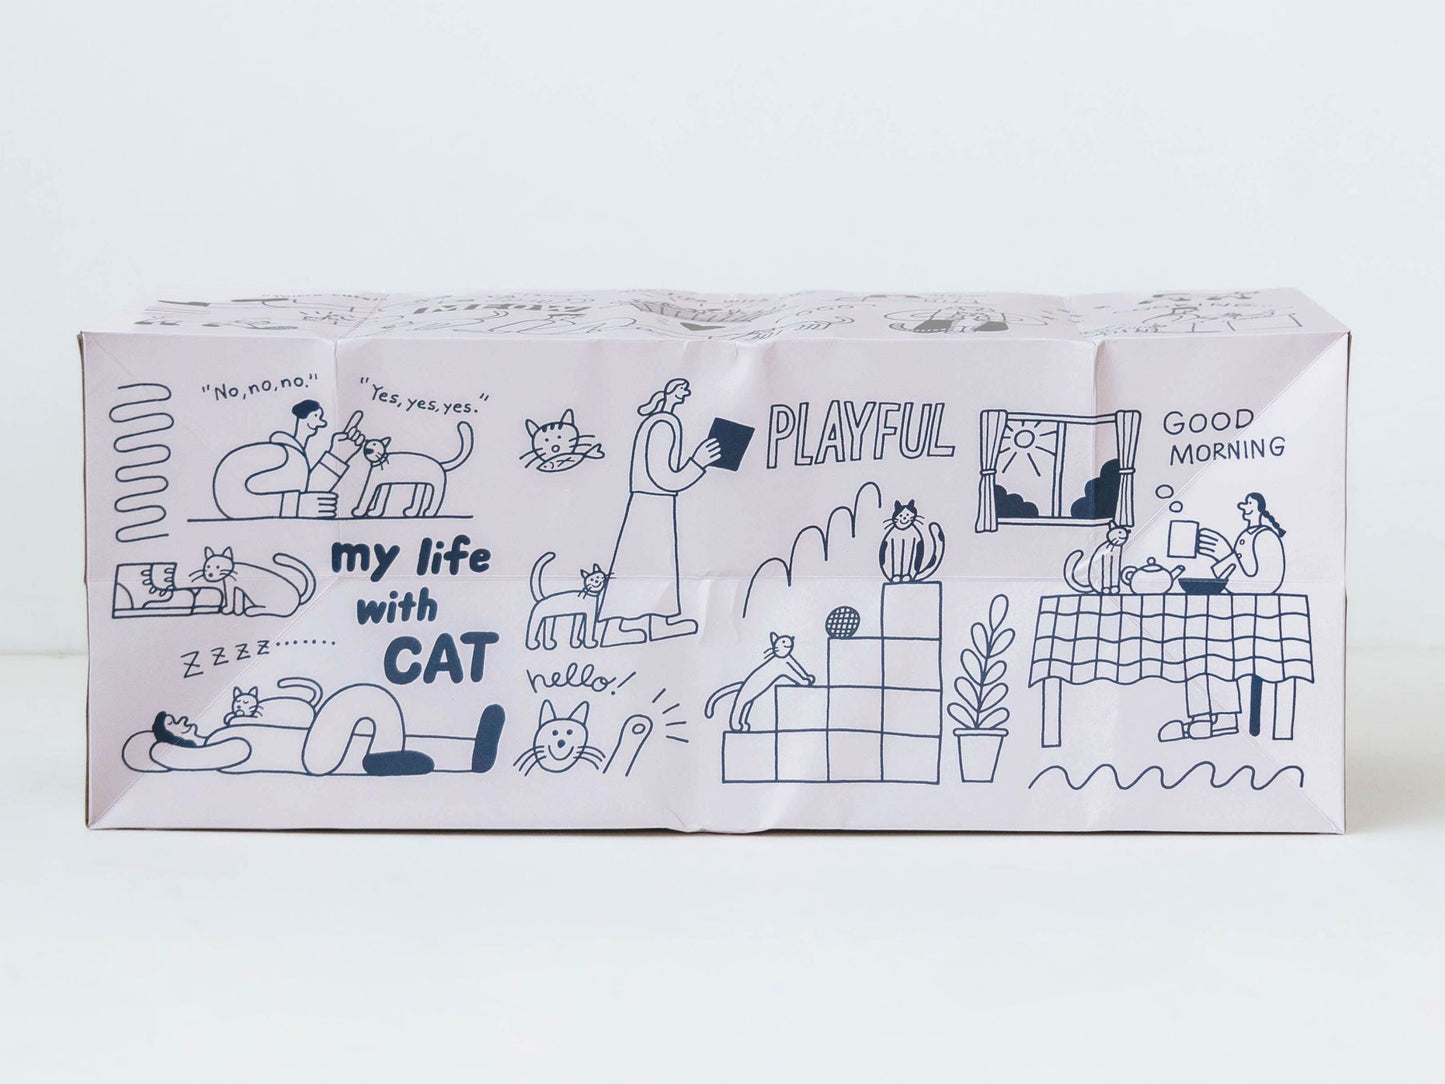 "No, no, no."
"Yes, yes, yes."
my life
with
CAT
Zzzz.......
hello!
PLAYFUL
GOOD
MORNING